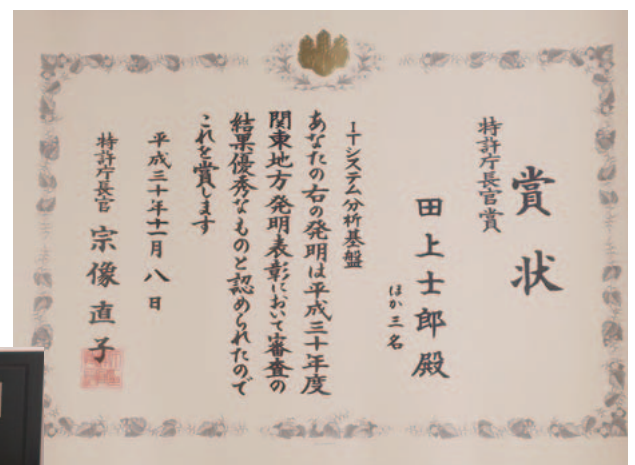 賞状
特許庁長官賞
田上士郎殿
ほか三名
ITシステム分析基盤
あなたの右の発明は平成三十年度
関東地方発明表彰において審査の
結果優秀なものと認められたので
これを賞します
平成三十年十一月八日
特許庁長官 宗像直子